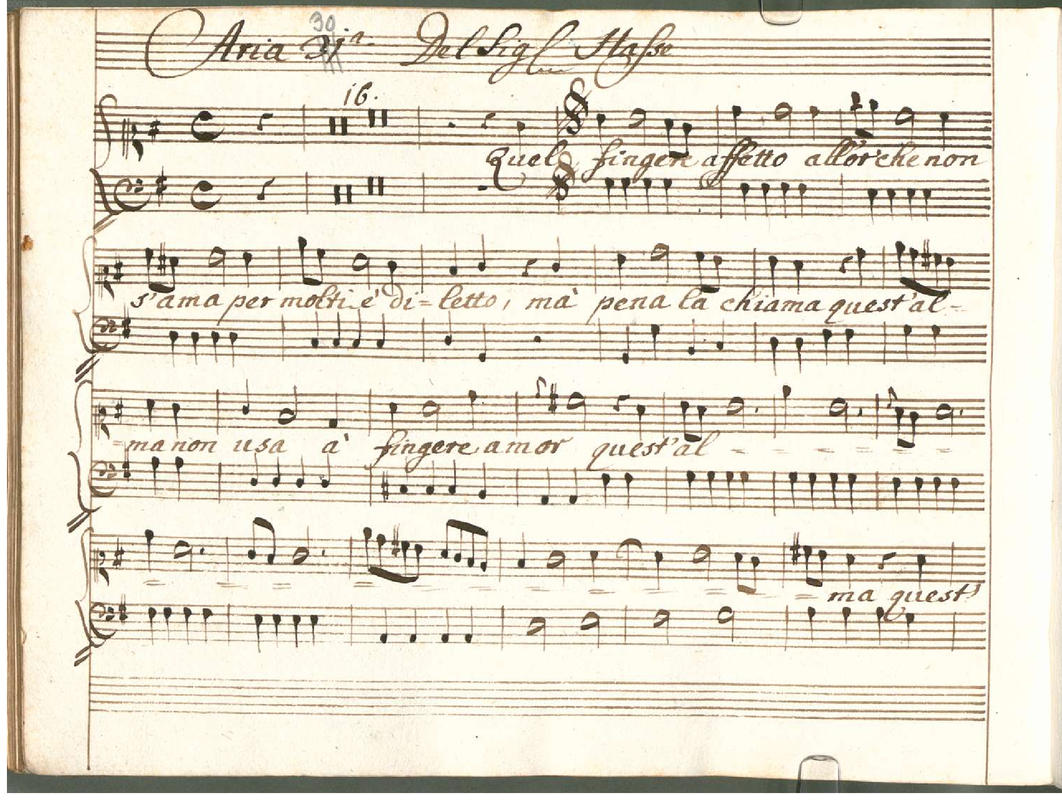 30
Aria 3ja. Del Sigl. Hasse
16.
Quel fingere affetto allor che non
s'ama per molti è di=letto, mà pena la chiama quest'al=
=ma non usa à fingere amor quest'al = = = = = =
= = = = = = = = = = = = = ma quest'